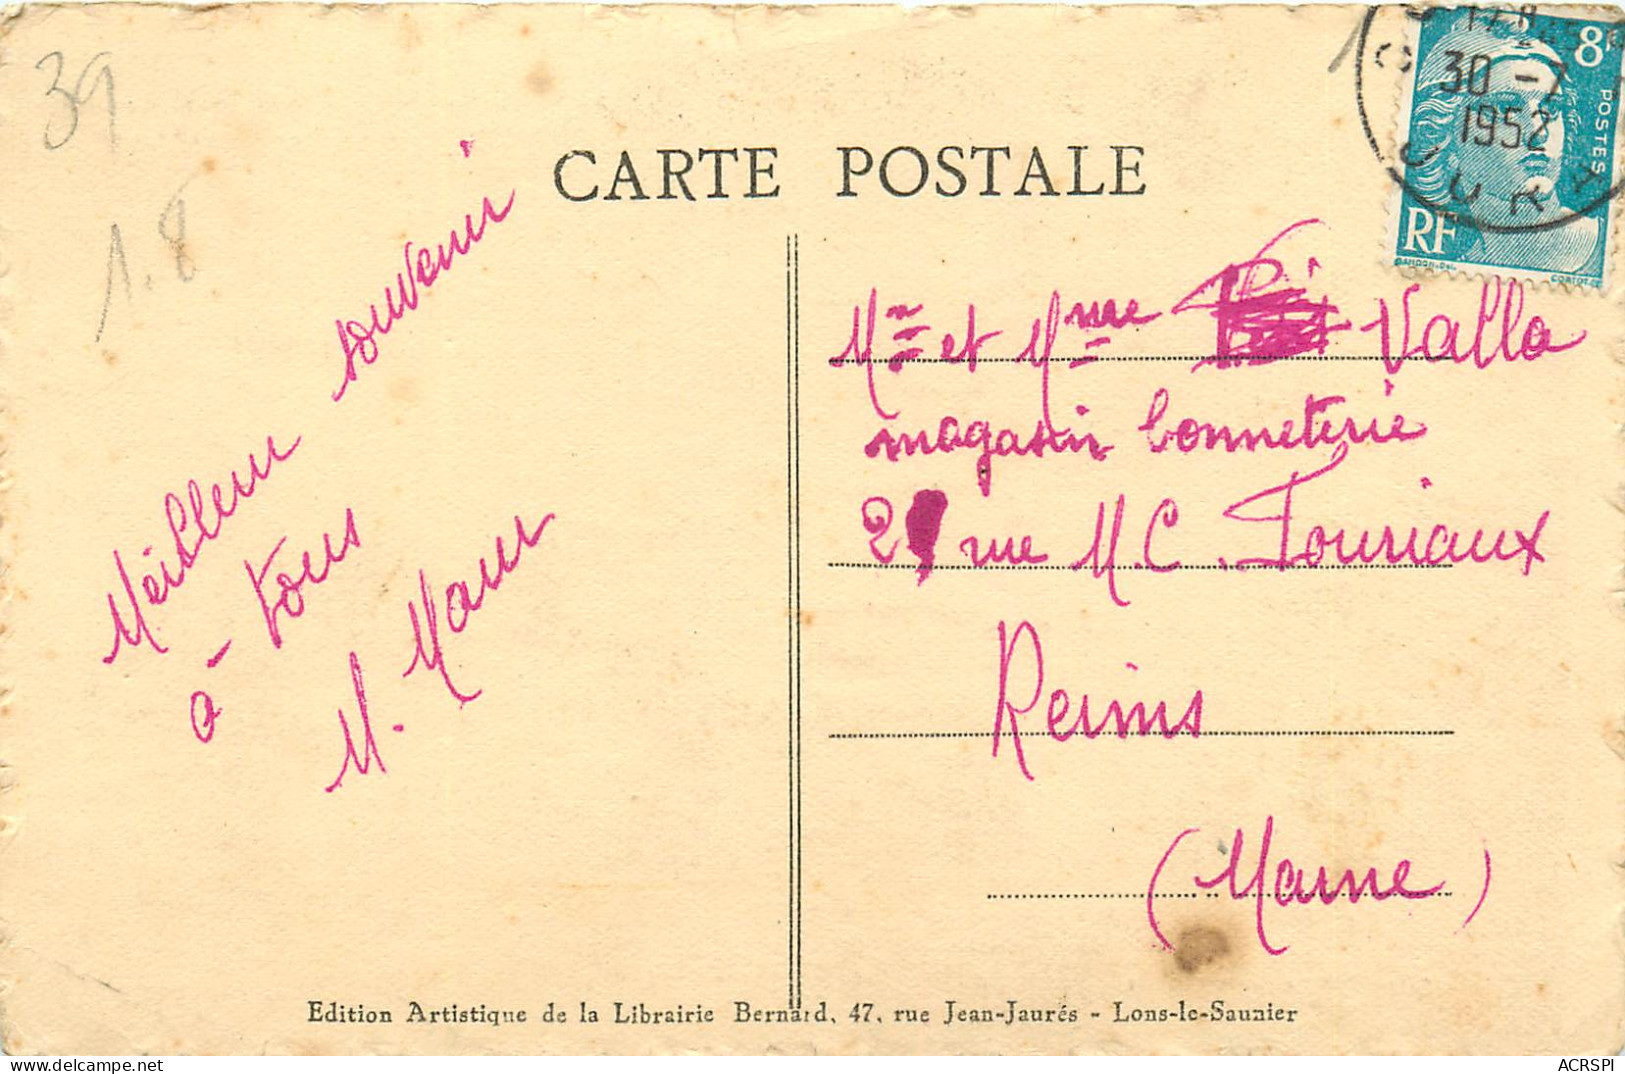 39
1.8
CARTE POSTALE
8F
POSTES
RF
30 - 7
1952
GANDON.DEL
CORTOT.SC
Meilleur souvenir
à tous
M. Maur
Mr et Mme Valla
magasin bonneterie
2 rue M.C. Fouriaux
Reims
(Marne)
Edition Artistique de la Librairie Bernard, 47, rue Jean-Jaurés - Lons-le-Saunier
ACRSPI